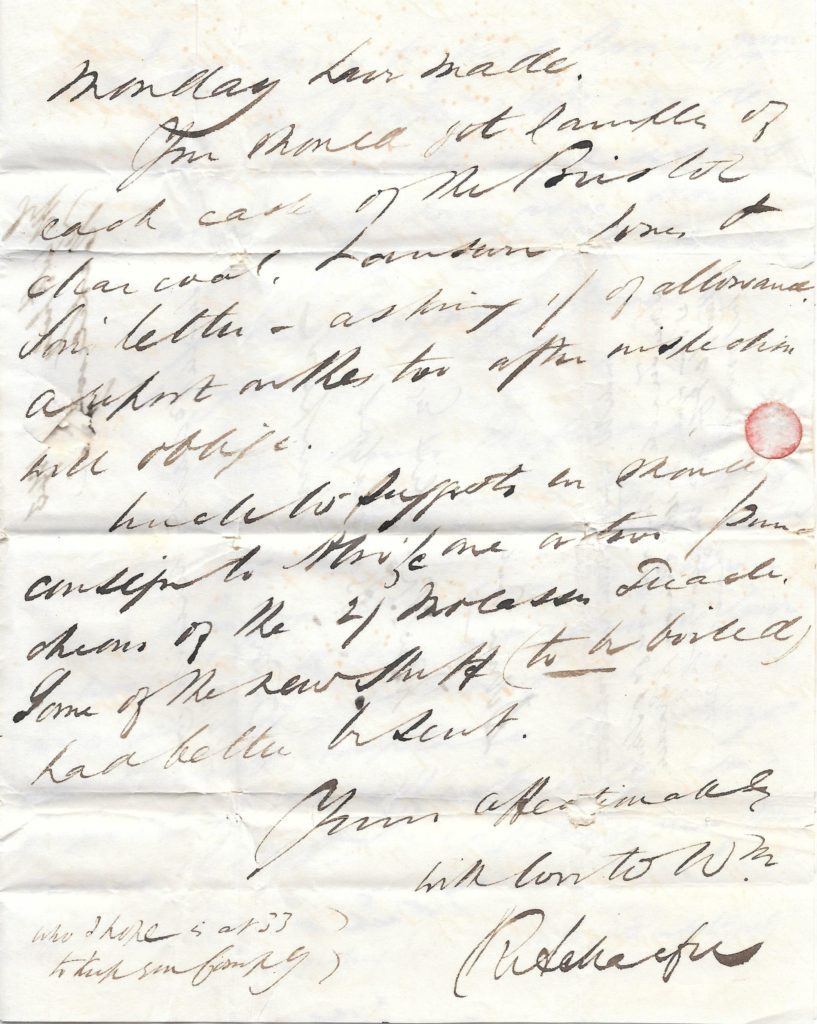 Monday have made.
You should get samples of
each cask of the Bristol
charcoal. Lawson Jones &
Sons letter - asking 1/ of allowance
a report on this too after inspection
will oblige.
Uncle W suggests we should
consign to one or two pun-
cheons of the 2/ Molasses Treacle.
Some of the new stuff (to be boiled)
had better be sent.
Yours affectionately
with love to Wm
R Schaefer
who I hope is at 33
to keep you company